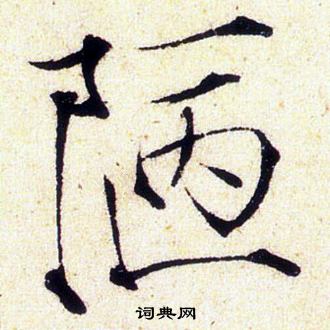 陋
词典网